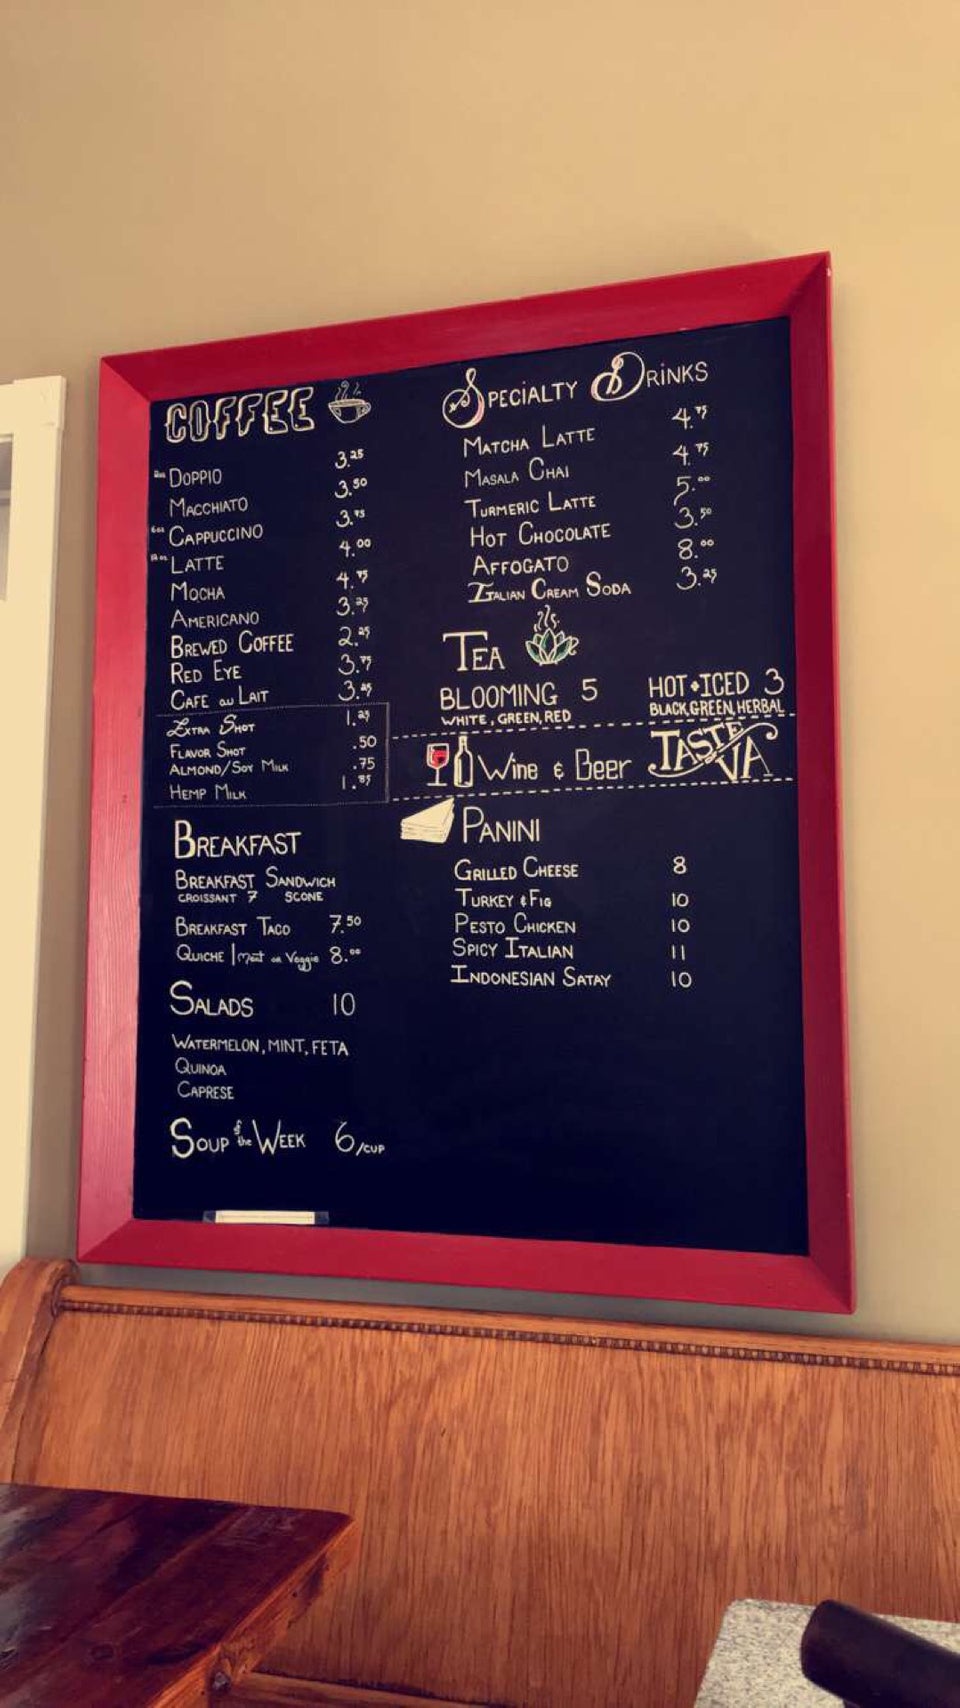 COFFEE
2oz DOPPIO 3.25
MACCHIATO 3.50
6oz CAPPUCCINO 3.75
12oz LATTE 4.00
MOCHA 4.75
AMERICANO 3.25
BREWED COFFEE 2.25
RED EYE 3.75
CAFE au LAIT 3.25
EXTRA SHOT 1.25
FLAVOR SHOT .50
ALMOND/SOY MILK .75
HEMP MILK
BREAKFAST
BREAKFAST SANDWICH
CROISSANT 7 SCONE
BREAKFAST TACO 7.50
QUICHE | Meat or Veggie 8.00
SALADS 10
WATERMELON, MINT, FETA
QUINOA
CAPRESE
SOUP of the WEEK 6/CUP
SPECIALTY DRINKS
MATCHA LATTE 4.75
MASALA CHAI 4.75
TURMERIC LATTE 5.00
HOT CHOCOLATE 3.50
AFFOGATO 8.00
ITALIAN CREAM SODA 3.25
TEA
BLOOMING 5
WHITE, GREEN, RED
HOT • ICED 3
BLACK, GREEN, HERBAL
Wine & Beer
TASTE
VA
PANINI
GRILLED CHEESE 8
TURKEY & FIG 10
PESTO CHICKEN 10
SPICY ITALIAN 11
INDONESIAN SATAY 10